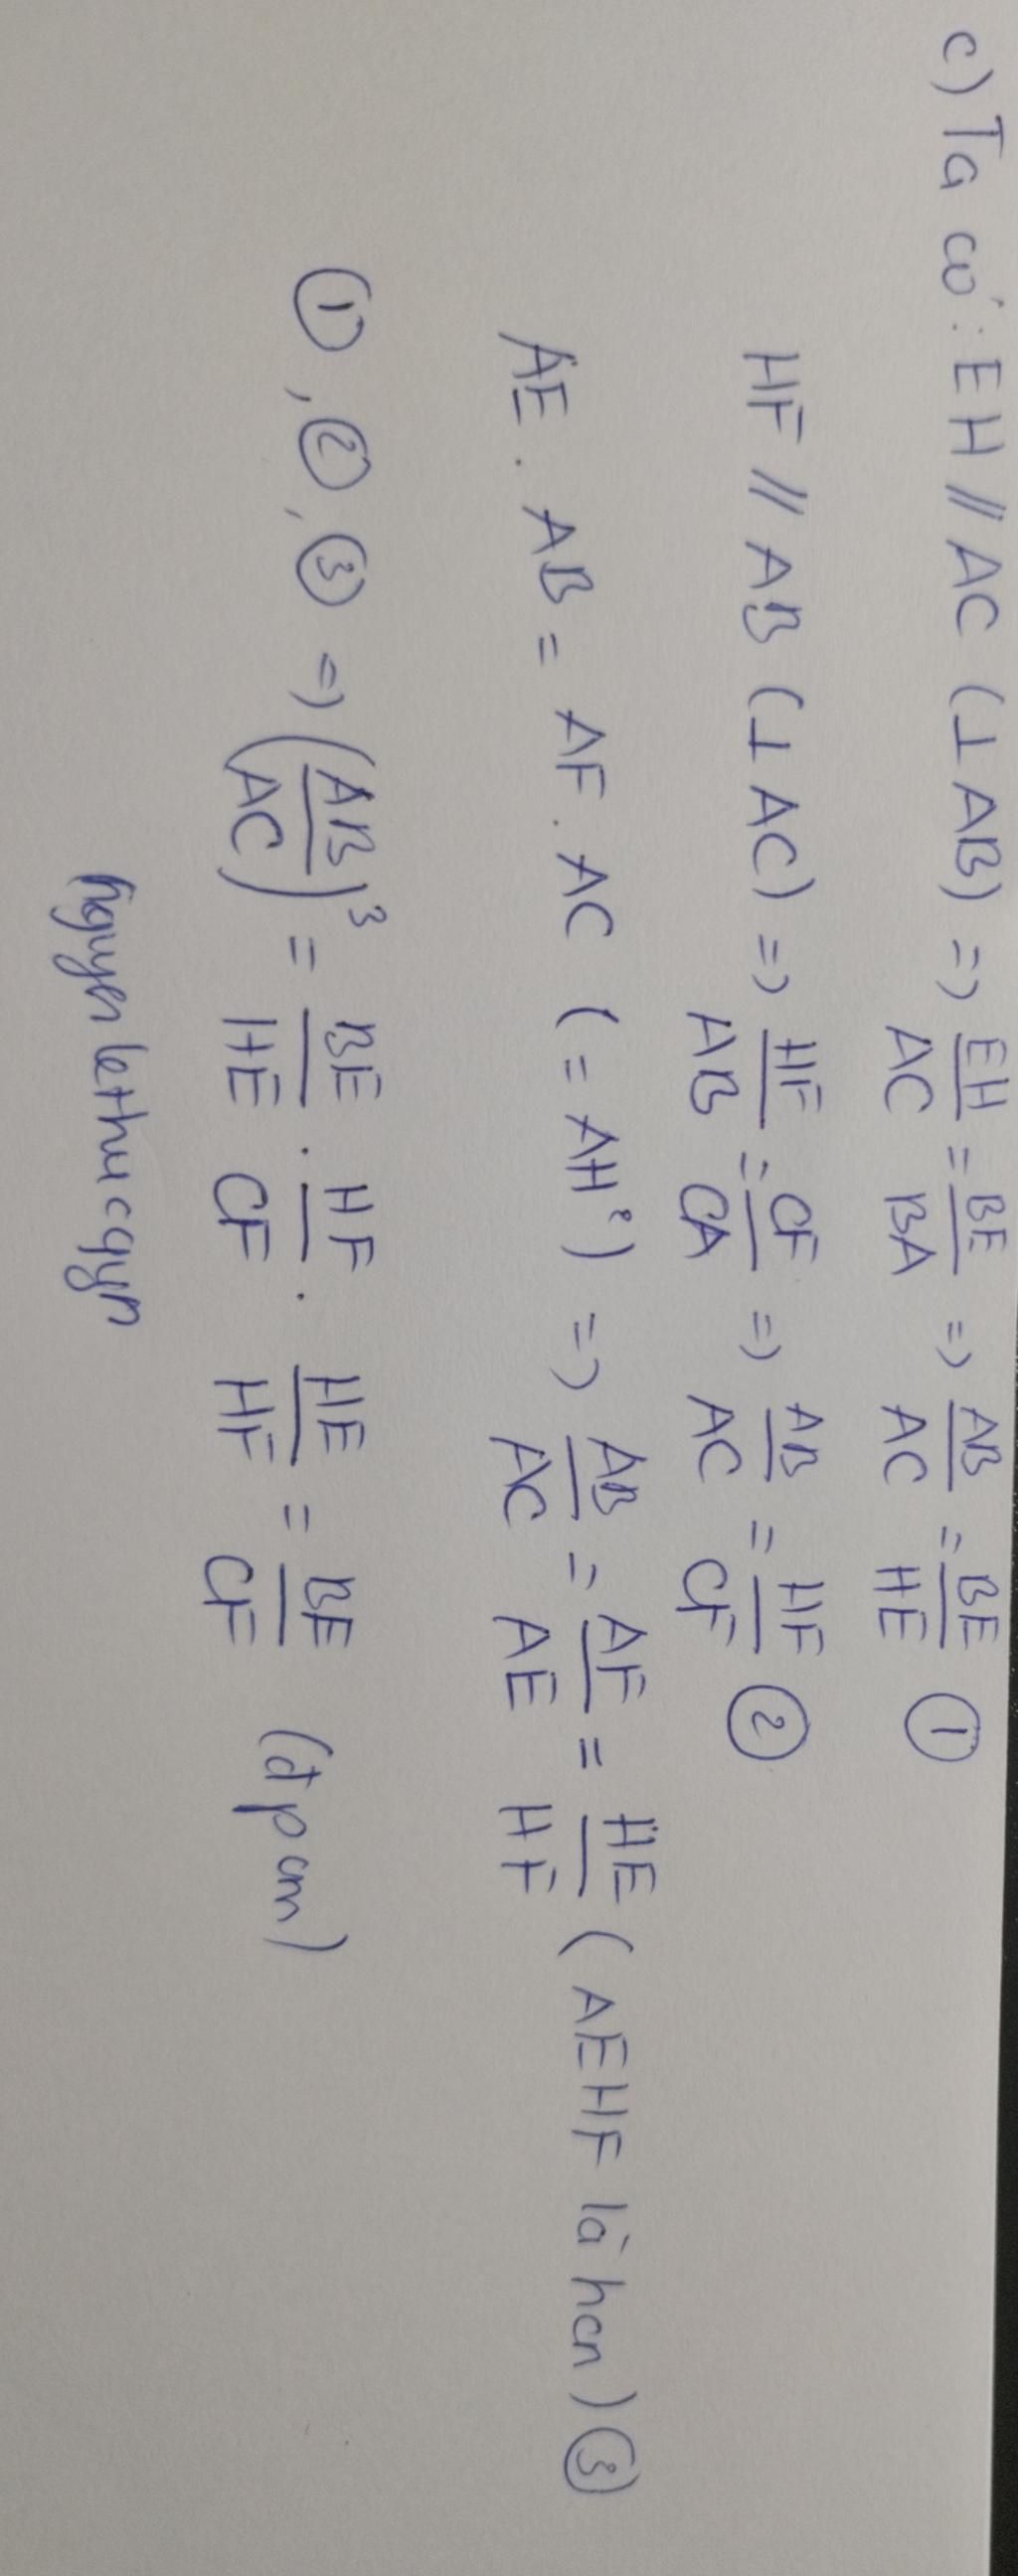 c) Ta có: EH // AC (⊥ AB) => EH/AC = BE/BA => AB/AC = BE/HE ①
HF // AB (⊥ AC) => HF/AB = CF/CA => AB/AC = HF/CF ②
AE . AB = AF . AC (= AH²) => AB/AC = AF/AE = HE/HF (AEHF là hcn) ③
①, ②, ③ => (AB/AC)³ = BE/HE . HF/CF . HE/HF = BE/CF (đpcm)
nguyen lethucqyn